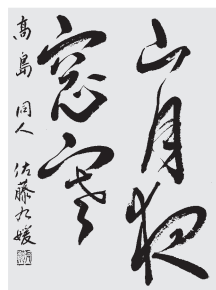 山月夜
窓寒
高島 同人 佐藤九媛